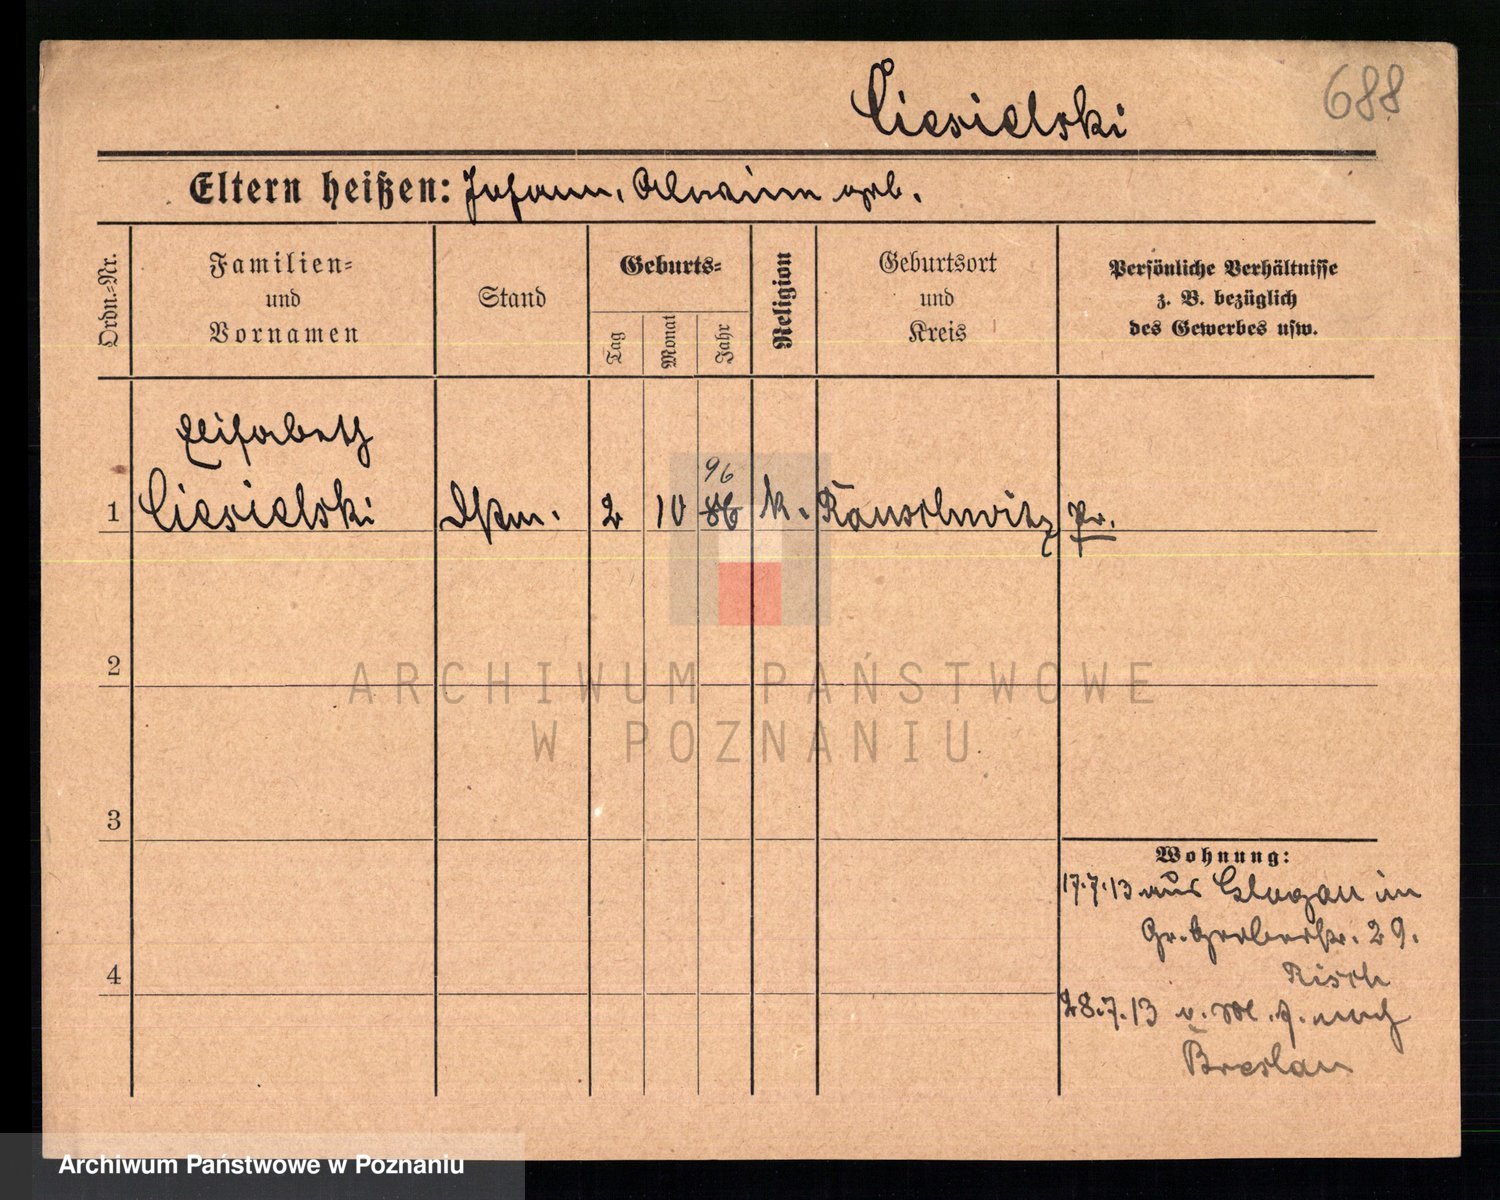 688
Ciesielski
Eltern heißen: Johann, geb.
Ordn.-Nr.
Familien-
und
Vornamen
Stand
Geburts-
Tag
Monat
Jahr
Religion
Geburtsort
und
Kreis
Persönliche Verhältnisse
z. B. bezüglich
des Gewerbes usw.
Elisabeth
96
1 Ciesielski 2 10 86 k. Rauschwitz Pr.
2
ARCHIWUM PAŃSTWOWE
W POZNANIU
3
Wohnung:
17.7.13 aus Glogau in
Gr. Gerberstr. 29.
Risch
4
28.7.13 v. M. f. nach
Breslau
Archiwum Państwowe w Poznaniu